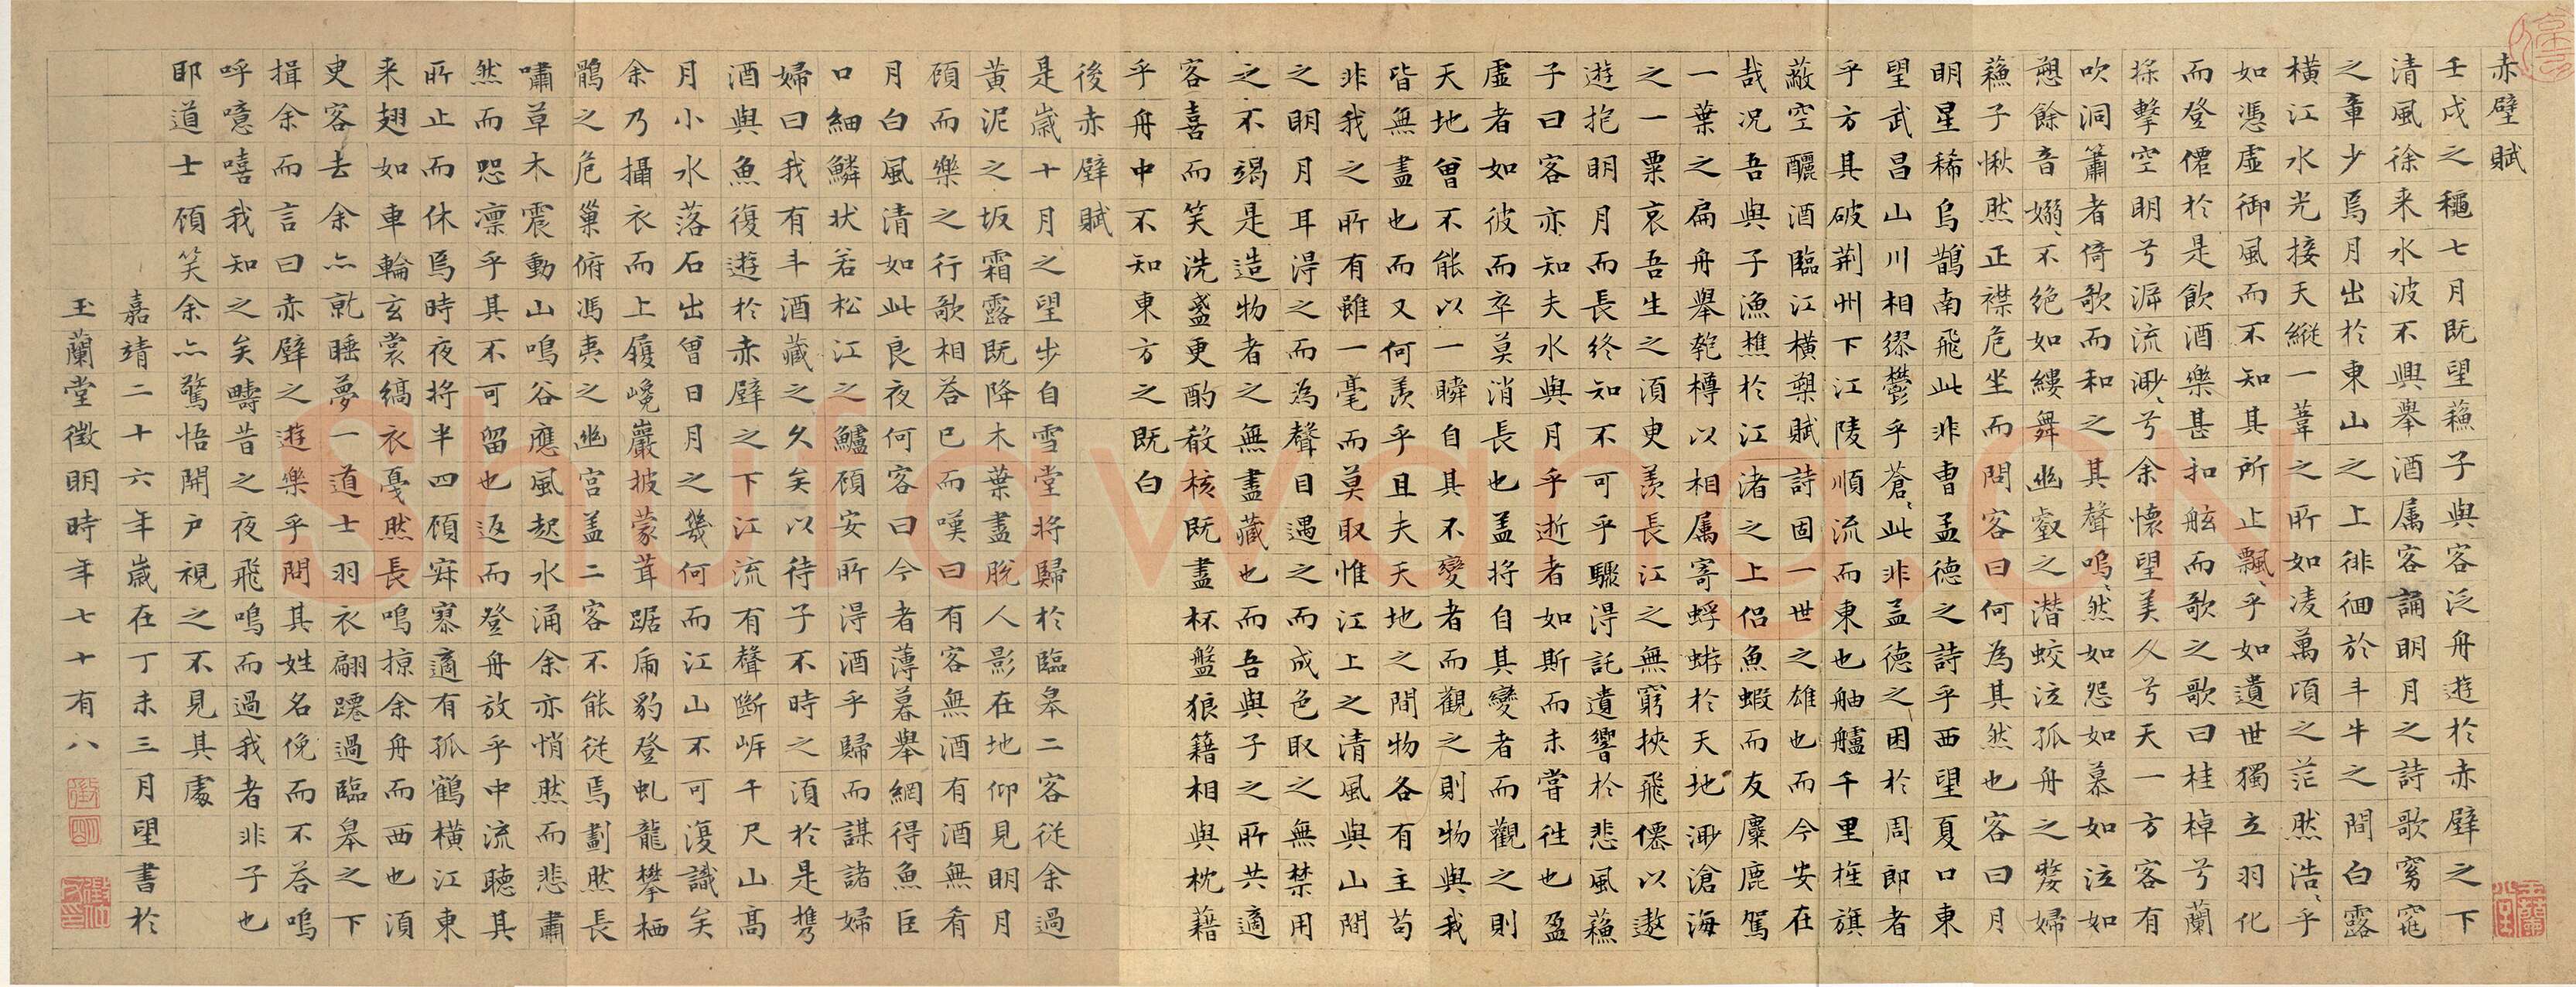 赤壁賦
壬戌之穐七月既望蘓子與客泛舟遊於赤壁之下
清風徐来水波不興舉酒属客誦明月之詩歌窈窕
之章少焉月出於東山之上徘徊於斗牛之間白露
橫江水光接天縱一葦之所如凌萬頃之茫然浩〻乎
如憑虛御風而不知其所止飄〻乎如遺世獨立羽化
而登僊於是飲酒樂甚扣舷而歌之歌曰桂棹兮蘭
槳擊空明兮泝流渺〻兮余懷望美人兮天一方客有
吹洞簫者倚歌而和之其聲嗚〻然如怨如慕如泣如
愬餘音嫋〻不絕如縷舞幽壑之潛蛟泣孤舟之嫠婦
蘓子愀然正襟危坐而問客曰何為其然也客曰月
明星稀烏鵲南飛此非曹孟德之詩乎西望夏口東
望武昌山川相繆鬱乎蒼〻此非孟德之困於周郎者
乎方其破荊州下江陵順流而東也舳艫千里旌旗
蔽空釃酒臨江橫槊賦詩固一世之雄也而今安在
哉况吾與子漁樵於江渚之上侣魚蝦而友麋鹿駕
一葉之扁舟舉匏樽以相属寄蜉蝣於天地渺滄海
之一粟哀吾生之須臾羨長江之無窮挾飛僊以遨
遊抱明月而長終知不可乎驟得託遺響於悲風蘓
子曰客亦知夫水與月乎逝者如斯而未嘗往也盈
虛者如彼而卒莫消長也盖將自其變者而觀之則
天地曾不能以一瞬自其不變者而觀之則物與我
皆無盡也而又何羨乎且夫天地之間物各有主苟
非我之所有雖一毫而莫取惟江上之清風與山間
之明月耳得之而為聲目遇之而成色取之無禁用
之不竭是造物者之無盡藏也而吾與子之所共適
客喜而笑洗盞更酌殽核既盡杯盤狼籍相與枕藉
乎舟中不知東方之既白
後赤壁賦
是歲十月之望步自雪堂將歸於臨皋二客從余過
黃泥之坂霜露既降木葉盡脫人影在地仰見明月
顧而樂之行歌相荅已而嘆曰有客無酒有酒無肴
月白風清如此良夜何客曰今者薄暮舉網得魚巨
口細鱗狀若松江之鱸顧安所得酒乎歸而謀諸婦
婦曰我有斗酒藏之久矣以待子不時之須於是携
酒與魚復遊於赤壁之下江流有聲斷岸千尺山高
月小水落石出曾日月之幾何而江山不可復識矣
余乃攝衣而上履巉巖披蒙茸踞虎豹登虬龍攀栖
鶻之危巢俯馮夷之幽宮盖二客不能從焉劃然長
嘯草木震動山鳴谷應風起水涌余亦悄然而悲肅
然而恐凛乎其不可留也返而登舟放乎中流聽其
所止而休焉時夜将半四顧寂寥適有孤鶴橫江東
来翅如車輪玄裳縞衣戛然長鳴掠余舟而西也須
臾客去余亦就睡夢一道士羽衣翩躚過臨皋之下
揖余而言曰赤壁之遊樂乎問其姓名俛而不荅嗚
呼噫嘻我知之矣疇昔之夜飛鳴而過我者非子也
耶道士顧笑余亦驚悟開户視之不見其處
嘉靖二十六年歲在丁未三月望書於
玉蘭堂徵明時年七十有八
shufawang.CN